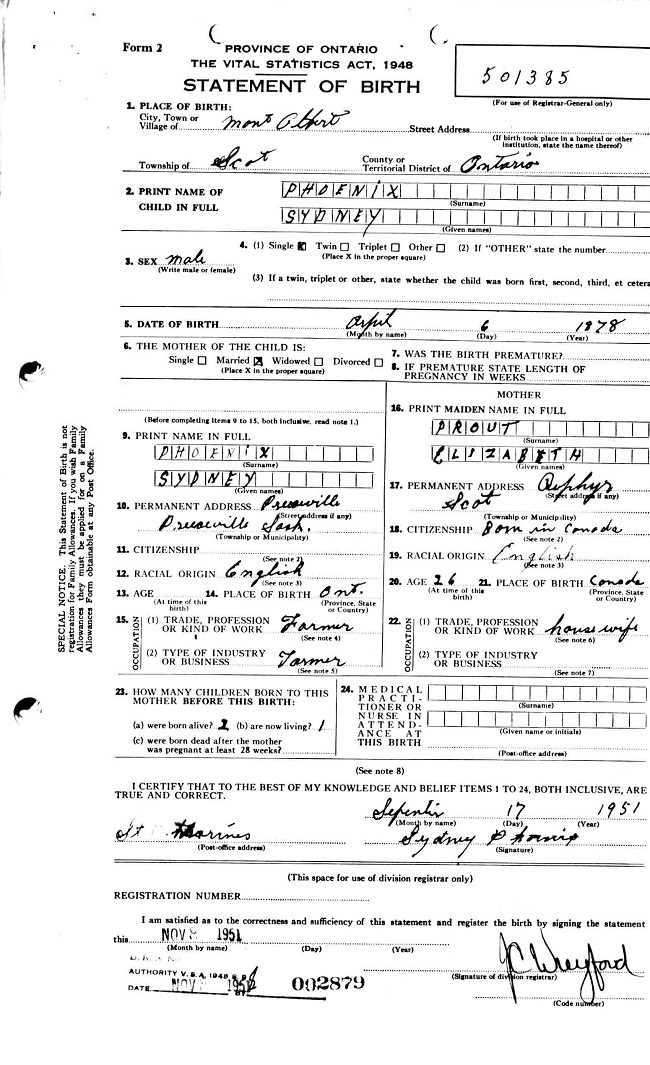 Form 2
PROVINCE OF ONTARIO
THE VITAL STATISTICS ACT, 1948
STATEMENT OF BIRTH
501385
(For use of Registrar-General only)
1. PLACE OF BIRTH:
City, Town or
Village of Mont Albert Street Address
(If birth took place in a hospital or other
institution, state the name thereof)
Township of Scot County or
Territorial District of Ontario
2. PRINT NAME OF
CHILD IN FULL
PHOENIX
(Surname)
SYDNEY
(Given names)
4. (1) Single Twin Triplet Other (2) If "OTHER" state the number
(Place X in the proper square)
3. SEX male
(Write male or female)
(3) If a twin, triplet or other, state whether the child was born first, second, third, et cetera
5. DATE OF BIRTH April 6 1878
(Month by name) (Day) (Year)
6. THE MOTHER OF THE CHILD IS:
Single Married X Widowed Divorced
(Place X in the proper square)
7. WAS THE BIRTH PREMATURE?
8. IF PREMATURE STATE LENGTH OF
PREGNANCY IN WEEKS
(Before completing items 9 to 15, both inclusive, read note 1.)
9. PRINT NAME IN FULL
PHOENIX
(Surname)
SYDNEY
(Given names)
10. PERMANENT ADDRESS Preeceville
(Street address if any)
Preeceville Sask.
(Township or Municipality)
11. CITIZENSHIP
(See note 2)
12. RACIAL ORIGIN English
(See note 3)
13. AGE 14. PLACE OF BIRTH Ont.
(At time of this
birth) (Province, State
or Country)
15. OCCUPATION
(1) TRADE, PROFESSION
OR KIND OF WORK Farmer
(See note 4)
(2) TYPE OF INDUSTRY
OR BUSINESS Farmer
(See note 5)
MOTHER
16. PRINT MAIDEN NAME IN FULL
PROUT
(Surname)
ELIZABETH
(Given names)
17. PERMANENT ADDRESS Zephyr
(Street address if any)
Scot
(Township or Municipality)
18. CITIZENSHIP Born in Canada
(See note 2)
19. RACIAL ORIGIN English
(See note 3)
20. AGE 26 21. PLACE OF BIRTH Canada
(At time of this
birth) (Province, State
or Country)
22. OCCUPATION
(1) TRADE, PROFESSION
OR KIND OF WORK house wife
(See note 6)
(2) TYPE OF INDUSTRY
OR BUSINESS
(See note 7)
23. HOW MANY CHILDREN BORN TO THIS
MOTHER BEFORE THIS BIRTH:
(a) were born alive? (b) are now living? 1
(c) were born dead after the mother
was pregnant at least 28 weeks?
24. MEDICAL
PRACTI-
TIONER OR
NURSE IN
ATTEND-
ANCE AT
THIS BIRTH
(Surname)
(Given name or initials)
(Post-office address)
(See note 8)
I CERTIFY THAT TO THE BEST OF MY KNOWLEDGE AND BELIEF ITEMS 1 TO 24, BOTH INCLUSIVE, ARE
TRUE AND CORRECT.
17 1951
(Month by name) (Day) (Year)
St
(Post-office address)
Sydney Phoenix
(Signature)
(This space for use of division registrar only)
REGISTRATION NUMBER
I am satisfied as to the correctness and sufficiency of this statement and register the birth by signing the statement
this NOV 8 1951
(Month by name) (Day) (Year)
(Signature of division registrar)
AUTHORITY V.S.A. 1948
DATE NOV 8 195
002879
(Code number)
SPECIAL NOTICE. This Statement of Birth is not
registration for Family Allowances. If you wish Family
Allowances they must be applied for on a Family
Allowances Form obtainable at any Post Office.